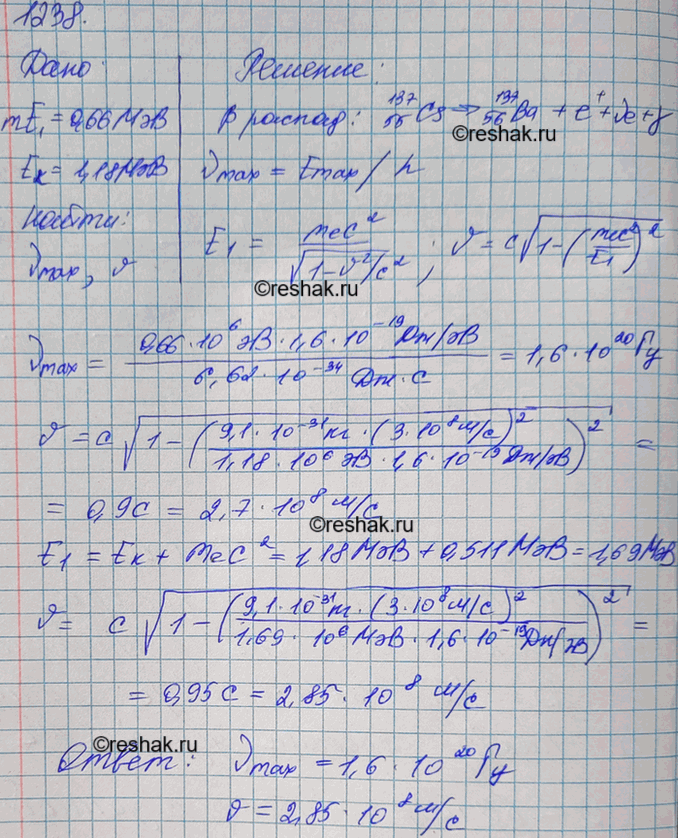 1238.
Дано: Решение:
mE₁ = 0,66 МэВ β распад: ¹³⁷₅₅Cs → ¹³⁷₅₆Ba + e⁺ + νe + γ
©reshak.ru
Eк = 1,18 МэВ νmax = Emax / h
Найти:
νmax, ϑ E₁ = mec² / √(1 - ϑ²/c²) ; ϑ = c√(1 - (mec²/E₁)²)
©reshak.ru
νmax = (0,66 · 10⁶ эВ · 1,6 · 10⁻¹⁹ Дж/эВ) / (6,62 · 10⁻³⁴ Дж · с) = 1,6 · 10²⁰ Гц
ϑ = c √(1 - (9,1 · 10⁻³¹ кг · (3 · 10⁸ м/с)² / 1,18 · 10⁶ эВ · 1,6 · 10⁻¹⁹ Дж/эВ)²) =
= 0,9c = 2,7 · 10⁸ м/с
©reshak.ru
E₁ = Eк + mec² = 1,18 МэВ + 0,511 МэВ = 1,69 МэВ
ϑ = c √(1 - (9,1 · 10⁻³¹ кг · (3 · 10⁸ м/с)² / 1,69 · 10⁶ МэВ · 1,6 · 10⁻¹⁹ Дж/эВ)²) =
= 0,95c = 2,85 · 10⁸ м/с
©reshak.ru
Ответ: νmax = 1,6 · 10²⁰ Гц
ϑ = 2,85 · 10⁸ м/с